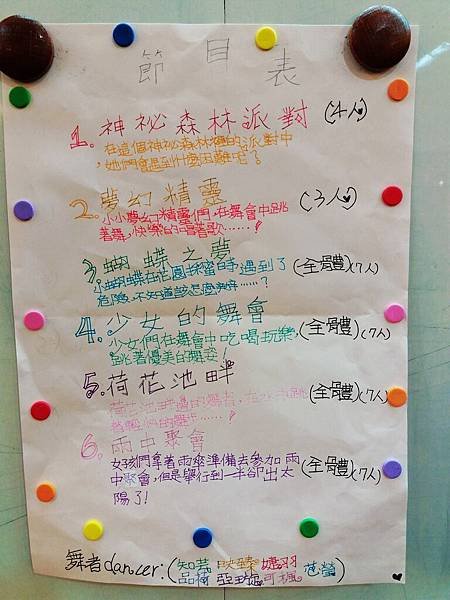 節目表
1. 神祕森林派對 (4人)
在這個神祕森林裡的派對中
,她們會遇到什麼困難呢?
2. 夢幻精靈 (3人)
小小夢幻精靈們,在舞會中跳
著舞,快樂的唱著歌……!
3. 蝴蝶之夢 (全體)(7人)
小蝴蝶在花園採蜜時,遇到了
危險,不知道該怎麼辦……?
4. 少女的舞會 (全體)(7人)
少女們在舞會中吃喝玩樂,
跳著優美的舞姿!
5. 荷花池畔 (全體)(7人)
荷花池畔邊的舞者,在
6. 雨中聚會 (全體)(7人)
女孩們拿著雨傘準備去參加雨
中聚會,但是舉行到一半卻出太
陽了!
舞者dancer:(知芸 映臻 羽
品 亞 可 芭螢)